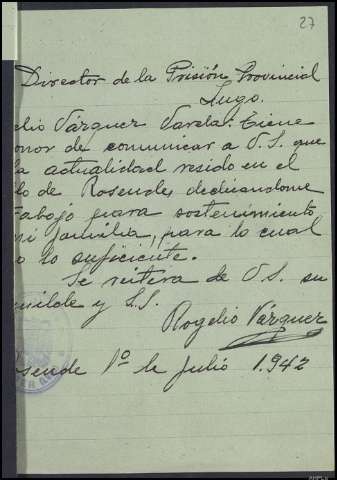 27
Director de la Prisión Provincial
Lugo.
elio Vázquez Varela: tiene
onor de comunicar a V.S. que
la actualidad resido en el
lo de Rosende, dedicandome
trabajo para sostenimiento
mi familia, para lo cual
o lo suficiente.
Se reitera de V.S. su
umilde y S.S.
Rogelio Vázquez
osende 1º de Julio 1.942